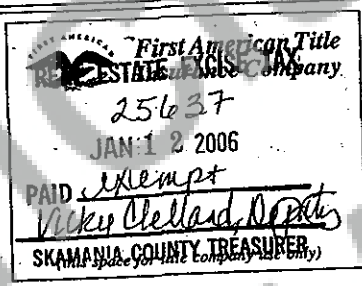 First American Title
Insurance Company
REAL ESTATE EXCISE TAX
25637
JAN 12 2006
PAID exempt
Vicky Clelland, Deputy
SKAMANIA COUNTY TREASURER
(this space for title company use only)